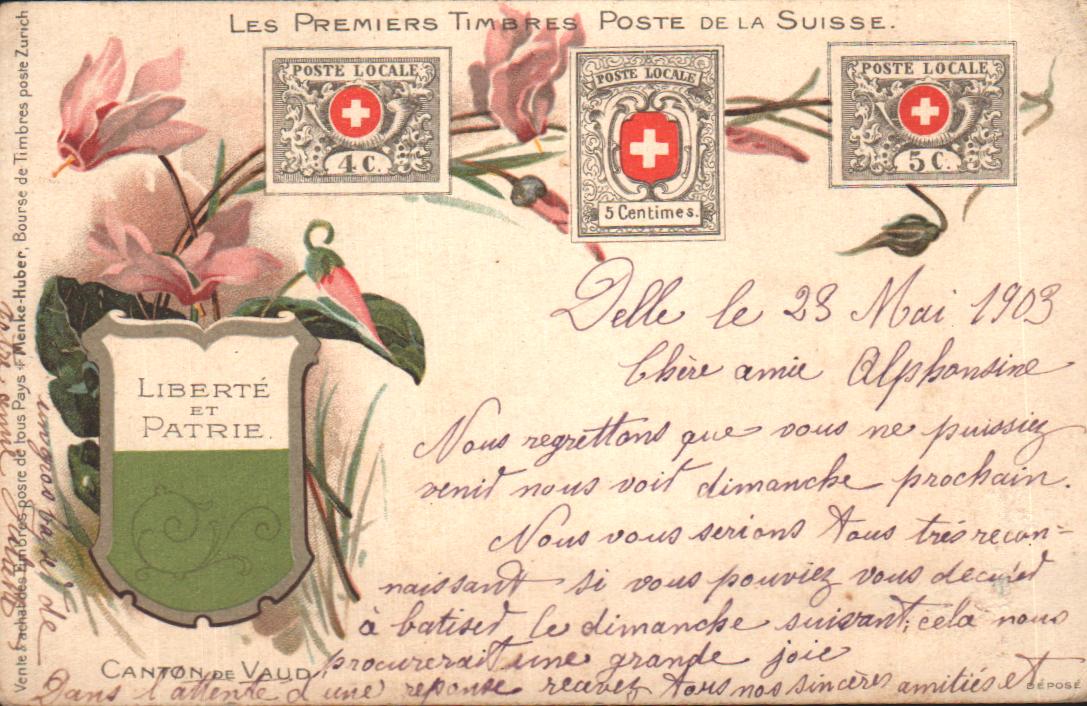 LES PREMIERS TIMBRES POSTE DE LA SUISSE.
POSTE LOCALE
4 C.
POSTE LOCALE
5 Centimes.
POSTE LOCALE
5 C.
Vente & achat des timbres poste de tous Pays Menke-Huber, Bourse de Timbres poste Zurich
LIBERTÉ
ET
PATRIE.
CANTON DE VAUD
Delle le 23 Mai 1903
Chère amie Alphonsine
Nous regrettons que vous ne puissiez
venir nous voir dimanche prochain.
Nous vous serions tous très recon-
naissant si vous pouviez vous decider
à batiser le dimanche suivant; cela nous
procurerait une grande joie
Dans l'attente d'une reponse recevez tous nos sincères amitiés et
un gros de
votre amie
DÉPOSÉ